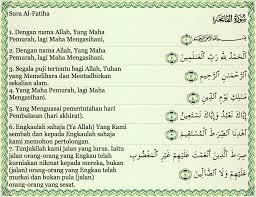 Sura Al-Fatiha
سُورَةُ الْفَاتِحَةِ
1. Dengan nama Allah, Yang Maha
Pemurah, lagi Maha Mengasihani.
2. Dengan nama Allah, Yang Maha
Pemurah, lagi Maha Mengasihani.
3. Segala puji tertentu bagi Allah, Tuhan
yang Memelihara dan Mentadbirkan
sekalian alam.
4. Yang Maha Pemurah, lagi Maha
Mengasihani.
5. Yang Menguasai pemerintahan hari
Pembalasan (hari akhirat).
6. Engkaulah sahaja (Ya Allah) Yang Kami
sembah dan kepada Engkaulah sahaja kami
memohon pertolongan.
7. Tunjukilah kami jalan yang lurus. Iaitu
jalan orang-orang yang Engkau telah
kurniakan nikmat kepada mereka, bukan
(jalan) orang-orang yang Engkau telah
murkai dan bukan pula (jalan)
orang-orang yang sesat.
الْحَمْدُ لِلَّهِ رَبِّ الْعَالَمِينَ
الرَّحْمَنِ الرَّحِيمِ
مَالِكِ يَوْمِ الدِّينِ
اهْدِنَا الصِّرَاطَ الْمُسْتَقِيمَ
صِرَاطَ الَّذِينَ أَنْعَمْتَ عَلَيْهِمْ غَيْرِ الْمَغْضُوبِ
عَلَيْهِمْ وَلَا الضَّالِّينَ